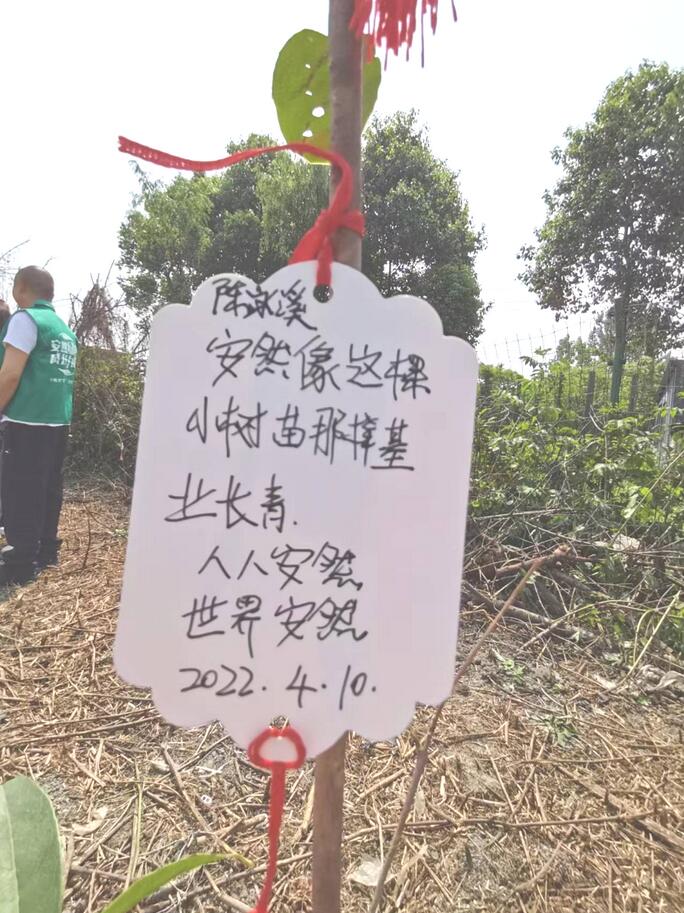 陈泳溪
安然像这棵
小树苗那样基
业长青.
人人安然
世界安然
2022.4.10.